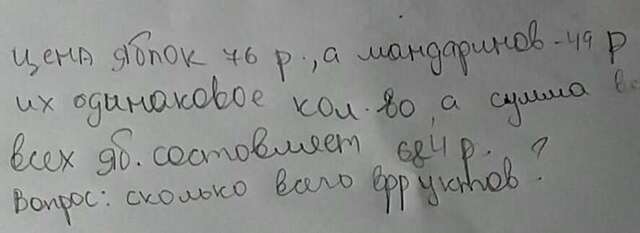 цена яблок 76 р., а мандаринов - 49 р
их одинаковое кол-во, а сумма
всех яб. составляет 684 р.
Вопрос: сколько всего фруктов?